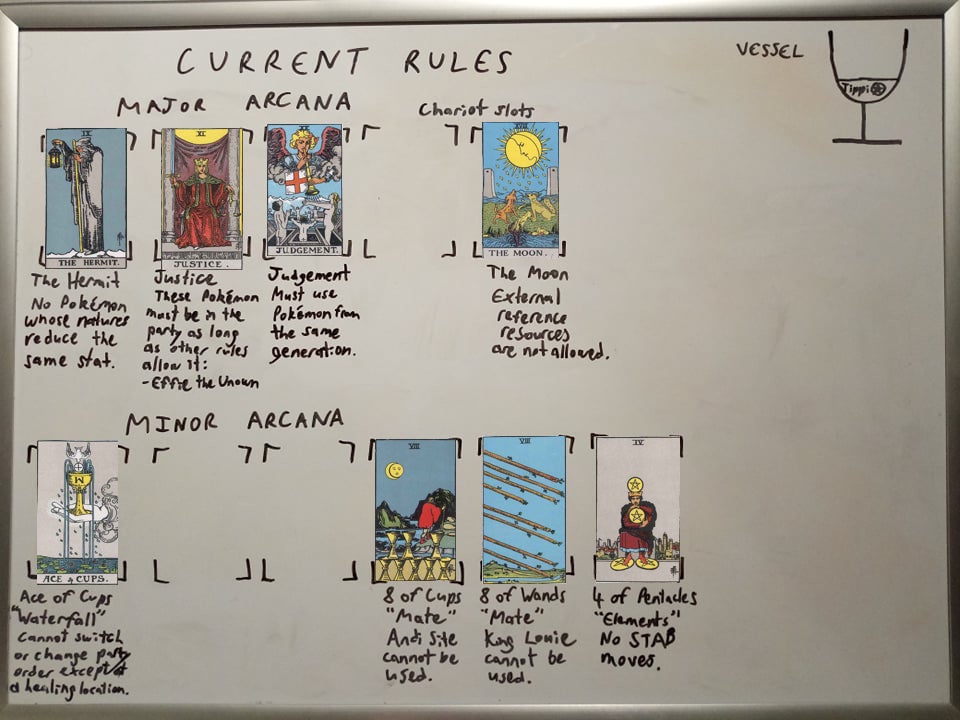 CURRENT RULES
VESSEL
Tippi
MAJOR ARCANA
Chariot slots
IX
THE HERMIT.
XI
JUSTICE.
JUDGEMENT.
XVIII
THE MOON.
The Hermit
No Pokémon
whose natures
reduce the
same stat.
Justice
These Pokémon
must be in the
party as long
as other rules
allow it:
-Effie the Unown
Judgement
Must use
Pokémon from
the same
generation.
The Moon
External
reference
resources
are not allowed.
MINOR ARCANA
ACE of CUPS.
VIII
VIII
IV
Ace of Cups
"Waterfall"
Cannot switch
or change party
order except at
a healing location.
8 of Cups
"Mate"
Andi Site
cannot be
used.
8 of Wands
"Mate"
King Louie
cannot be
used.
4 of Pentacles
"Elements"
No STAB
moves.